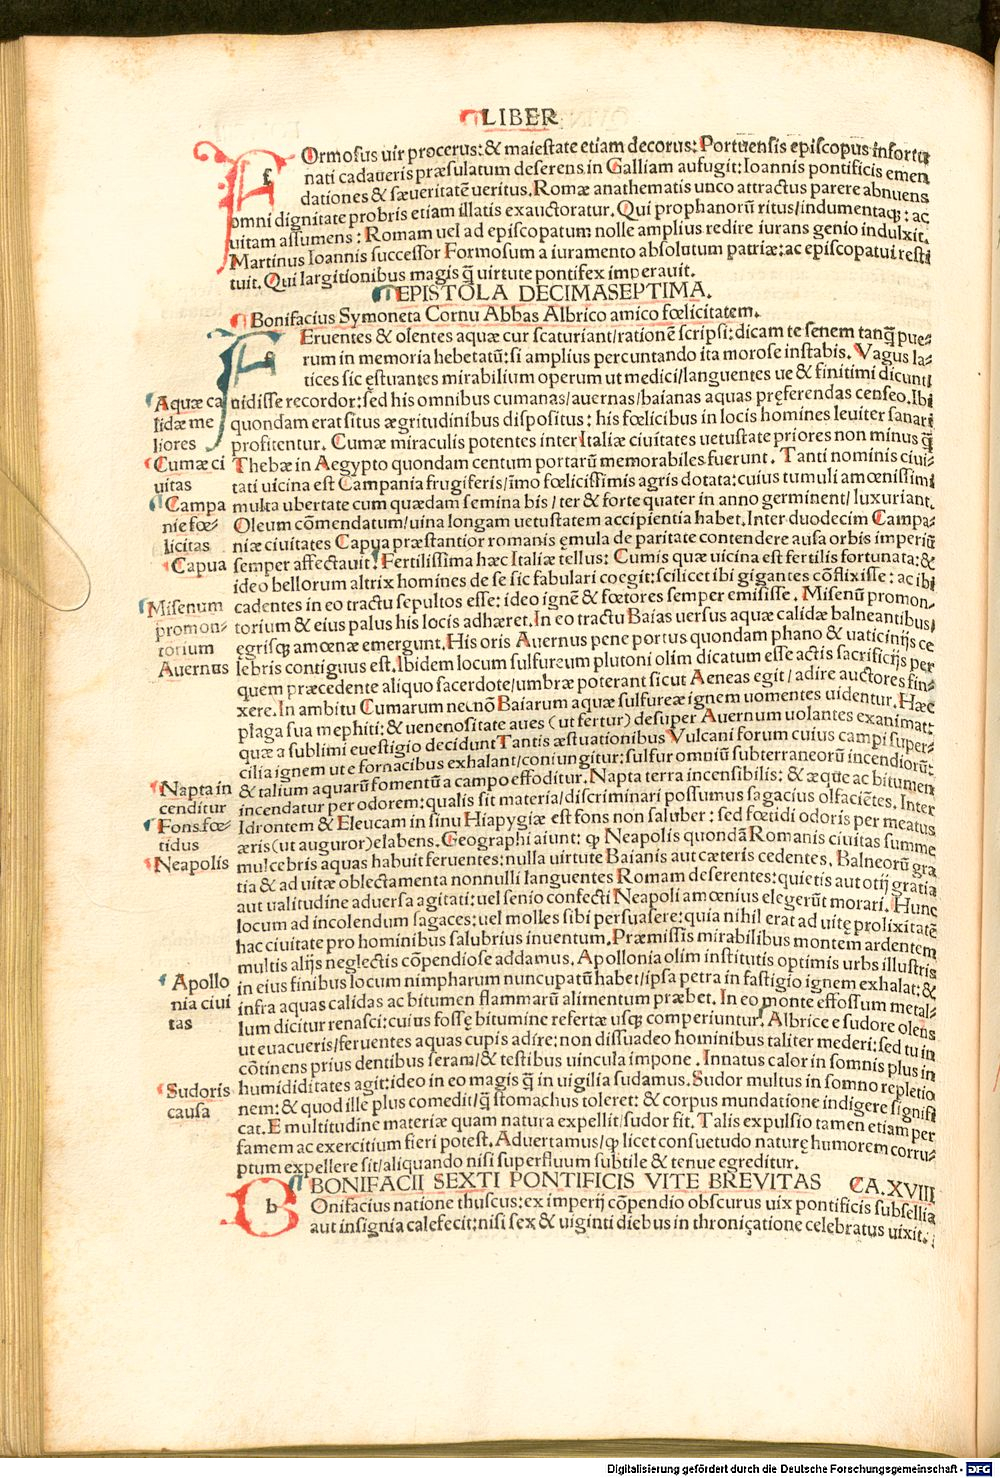 LIBER
FOrmosus uir procerus: & maiestate etiam decorus: Portuensis episcopus infortu
nati cadaueris præsulatum deserens in Galliam aufugit: Ioannis pontificis emen
dationes & sæueritatē ueritus. Romæ anathematis unco attractus parere abnuens
omni dignitate probris etiam illatis exauctoratur. Qui prophanorū ritus/indumentaqꝫ: ac
uitam assumens: Romam uel ad episcopatum nolle amplius redire iurans genio indulxit.
Martinus Ioannis successor Formosum a iuramento absolutum patriæ: ac episcopatui resti
tuit. Qui largitionibus magis q̄ uirtute pontifex imperauit.
EPISTOLA DECIMASEPTIMA.
Bonifacius Symoneta Cornu Abbas Albrico amico fœlicitatem.
FEruentes & olentes aquæ cur scaturiant/rationē scripsi: dicam te senem tanq̄ pue-
rum in memoria hebetatū: si amplius percuntando ita morose instabis. Vagus la-
tices sic ęstuantes mirabilium operum ut medici/languentes ue & finitimi dicunt/
uidisse recordor: sed his omnibus cumanas/auernas/baianas aquas pręferendas censeo. Ibi
quondam erat situs ægritudinibus dispositus: his fœlicibus in locis homines leuiter sanari
profitentur. Cumæ miraculis potentes inter Italiæ ciuitates uetustate priores non minus q̄
Thebæ in Aegypto quondam centum portarū memorabiles fuerunt. Tanti nominis ciui-
tati uicina est Campania frugiferis/imo fœlicissimis agris dotata: cuius tumuli amœnissimi
multa ubertate cum quædam semina bis/ter & forte quater in anno germinent/luxuriant.
Oleum cōmendatum/uina longam uetustatem accipientia habet. Inter duodecim Campa-
niæ ciuitates Capua præstantior romanis ęmula de paritate contendere ausa orbis imperiū
semper affectauit. Fertilissima hæc Italiæ tellus: Cumis quæ uicina est fertilis fortunata: &
ideo bellorum altrix homines de se sic fabulari coegit: scilicet ibi gigantes cōflixisse: ac ibi
cadentes in eo tractu sepultos esse: ideo ignē & fœtores semper emisisse. Misenū promon-
torium & eius palus his locis adhæret. In eo tractu Baias uersus aquæ calidæ balneantibus/
ęgrisqꝫ amœnæ emergunt. His oris Auernus pene portus quondam phano & uaticinijs ce
lebris contiguus est. Ibidem locum sulfureum plutoni olim dicatum esse actis sacrificijs per
quem præcedente aliquo sacerdote/umbræ poterant sicut Aeneas egit/adire auctores fin-
xere. In ambitu Cumarum necnō Baiarum aquæ sulfureæ ignem uomentes uidentur. Hæc
plaga sua mephiti: & uenenositate aues (ut fertur) desuper Auernum uolantes exanimat:
quæ a sublimi euestigio decidunt. Tantis æstuationibus Vulcani forum cuius campi super-
cilia ignem ut e fornacibus exhalant/coniungitur: sulfur omniū subterraneorū incendiorū:
& talium aquarū fomentū a campo effoditur. Napta terra incensibilis: & æque ac bitumen
incendatur per odorem: qualis sit materia/discriminari possumus sagacius olfaciētes. Inter
Idrontem & Eleucam in sinu Hiapygiæ est fons non saluber: sed fœtidi odoris per meatus
æris (ut auguror) elabens. Geographi aiunt: ꝙ Neapolis quondā Romanis ciuitas summe
mulcebris aquas habuit feruentes: nulla uirtute Baianis aut cæteris cedentes. Balneorū gra
tia & ad uitæ oblectamenta nonnulli languentes Romam deserentes: quietis aut otij gratia
aut ualitudine aduersa agitati: uel senio confecti Neapoli amœnius elegerūt morari. Hunc
locum ad incolendum sagaces: uel molles sibi persuasere: quia nihil erat ad uitę prolixitatē
hac ciuitate pro hominibus salubrius inuentum. Præmissis mirabilibus montem ardentem
multis alijs neglectis cōpendiose addamus. Apollonia olim institutis optimis urbs illustris
in eius finibus locum nimpharum nuncupatū habet/ipsa petra in fastigio ignem exhalat: &
infra aquas calidas ac bitumen flammarū alimentum præbet. In eo monte effossum metal-
lum dicitur renasci: cuius fossę bitumine refertæ usqꝫ comperiuntur. Albrice e sudore olens
ut euacueris/feruentes aquas cupis adire: non dissuadeo hominibus taliter mederi: sed tu in
cōtinens prius dentibus seram/& testibus uincula impone. Innatus calor in somnis plus in
humididitates agit: ideo in eo magis q̄ in uigilia sudamus. Sudor multus in somno repletio
nem: & quod ille plus comedit/q̄ stomachus toleret: & corpus mundatione indigere signifi
cat. E multitudine materiæ quam natura expellit/sudor fit. Talis expulsio tamen etiam per
famem ac exercitium fieri potest. Aduertamus/ꝙ licet consuetudo naturę humorem corru-
ptum expellere sit/aliquando nisi superfluum subtile & tenue egreditur.
BONIFACII SEXTI PONTIFICIS VITE BREVITAS CA.XVIII
BOnifacius natione thuscus: ex imperij cōpendio obscurus uix pontificis subsellia
aut insignia calefecit: nisi sex & uiginti diebus in throniçatione celebratus uixit.
Aquæ ca
lidæ me
liores
Cumæ ci
uitas
Campa
niæ fœ-
licitas
Capua
Misenum
promon-
torium
Auernus
Napta in
cenditur
Fons fœ-
tidus
Neapolis
Apollo
nia ciui
tas
Sudoris
causa
Digitalisierung gefördert durch die Deutsche Forschungsgemeinschaft - DFG